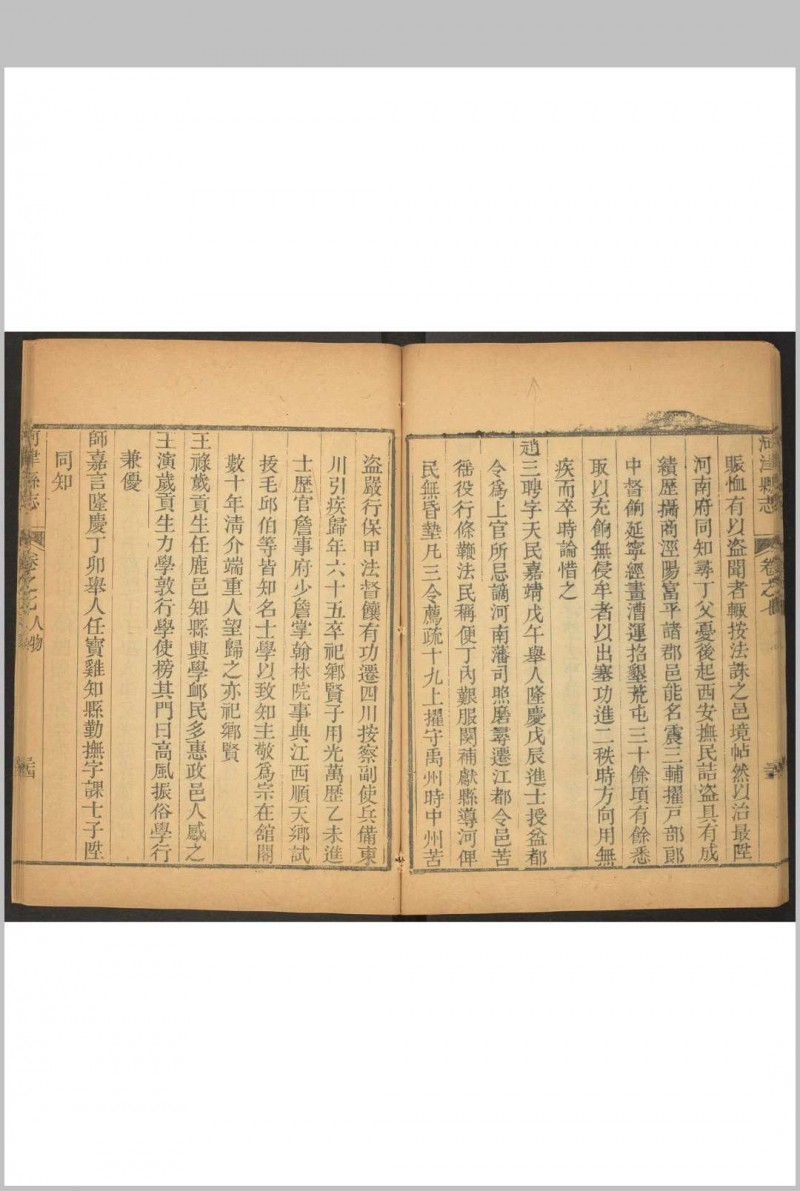 河津縣志
卷之
賑恤有以盜聞者輒按法誅之邑境帖然以治最陞
河南府同知尋丁父憂後起西安撫民詰盜具有成
績歷攝商涇陽富平諸郡邑能名震三輔擢戶部郎
中督餉延寧經畫漕運招墾荒屯三十餘頃有餘悉
取以充餉無侵牟者以出塞功進二秩時方向用無
疾而卒時論惜之
趙三聘字天民嘉靖戊午舉人隆慶戊辰進士授益都
令爲上官所忌謫河南藩司照磨尋遷江都令邑苦
徭役行條鞭法民稱便丁內艱服闋補獻縣導河俾
民無昏墊凡三令薦疏十九上擢守禹州時中州苦
盜嚴行保甲法督饟有功遷四川按察副使兵備東
川引疾歸年六十五卒祀鄉賢子用光萬歷乙未進
士歷官詹事府少詹掌翰林院事典江西順天鄉試
拔毛邱伯等皆知名士學以致知主敬爲宗在舘閣
數十年淸介端重人望歸之亦祀鄉賢
王祿歲貢生任鹿邑知縣興學邮民多惠政邑人感之
王演歲貢生力學敦行學使榜其門曰高風振俗學行
兼優
師嘉言隆慶丁卯舉人任寶雞知縣勤撫字課士子陞
同知
河津縣志
卷之 人物